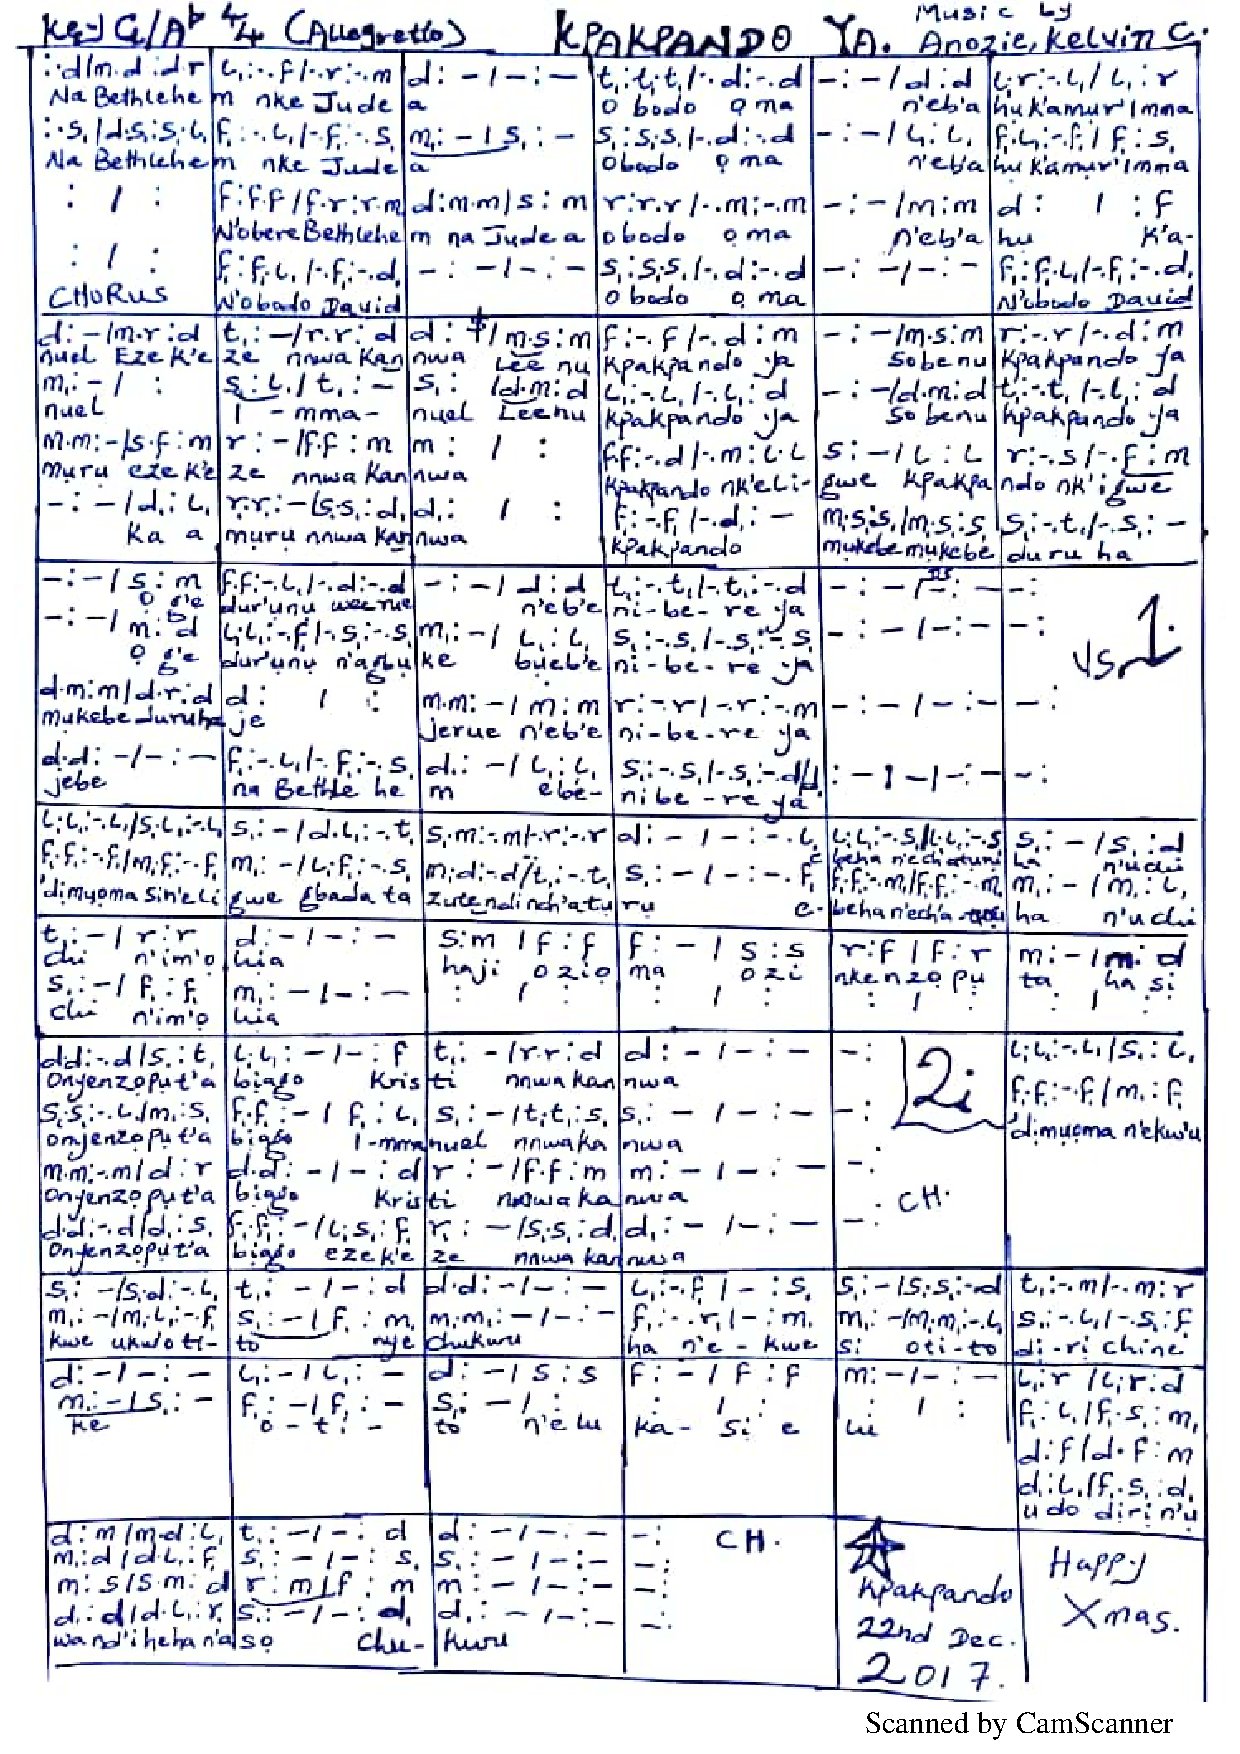 Key G/A♭ 4/4 (Allegretto) KPAKPANDO YA. Music by Anozie, Kelvin C.
:d/m.d:d.r | l,:-.f/-.r:-.m | d:-/-:- | t,:t,.t,/-.d:-.d | -:-/d:d | l,.r:-.l,/l,:r
Na Bethlehe | m nke Jude | a | O bodo ọma | n'eb'a | hu k'amur'Imma
:.s,/d.s,:s,.l, | f,:-.l,/-.f,:-.s, | m,:-/s,:- | s,:s,.s,/-.d:-.d | -:-/l,:l, | f,.l,:-.f,/f,:s,
Na Bethlehe | m nke Jude | a | Obodo ọma | n'eb'a | hu k'amur'Imma
: / : | f:f.f/f.r:r.m | d:m.m/s:m | r:r.r/-.m:-.m | -:-/m:m | d: / :f
N'obere Bethlehe | m na Judea | obodo ọma | n'eb'a | hu K'a-
: / : | f,:f,.l,/-.f,:-.d, | -:-/-:- | s,:s,.s,/-.d:-.d | -:-/-:- | f,:f,.l,/-.f,:-.d,
CHORUS | N'obodo David | O bodo ọma | N'obodo David
d:-/m.r:d | t,:-/r.r:d | d: /m.s:m | f:-.f/-.d:m | -:-/m.s:m | r:-.r/-.d:m
nuel Eze k'e | ze nnwa Kan | nwa Lee nu | Kpakpando ya | Sobenu | Kpakpando ya
m,:-/ : | s,:l,/t,:- | s,: /d.m:d | l,:-.l,/-.l,:d | -:-/d.m:d | t,:-.t,/-.l,:d
nuel | I-mma- | nuel Leenu | Kpakpando ya | So benu | kpakpando ya
m.m:-/s.f:m | r:-/f.f:m | m: / : | f.f:-.d/-.m:l.l | s:-/l:l | r:-.s/-.f:m
Muru eze k'e | ze nnwa Kan | nwa | Kpakpando nk'eli- | gwe kpakpa | ndo nk'igwe
-:-/d,:l, | r,.r,:-/s,.s,:d, | d,: / : | f,:-.f,/-.d,:- | m,.s,:s,/m,.s,:s, | s,:-.t,/-.s,:-
Ka a | muru nnwa Kan | nwa | Kpakpando | mukebe mukebe | duru ha
-:-/s:m | f.f:-.l,/-.d:-.d | -:-/d:d | t,:-.t,/-.t,:-.d | -:-/-:- | -:
O ge | dur'unu wee rue | n'eb'e | ni-be-re ya
-:-/m:d | l,.l,:-.f,/-.s,:-.s, | m,:-/l,:l, | s,:-.s,/-.s,:-.s | -:-/-:- | -: Vs. 1.
O g'e | dur'unu n'agbu | ke bueb'e | ni-be-re ya
d.m:m/d.r:d | d: / : | m.m:-/m:m | r:-.r/-.r:-.m | -:-/-:- | -:
mukebe duruha | je | jerue n'eb'e | ni-be-re ya
d.d:-/-:- | f,:-.l,/-.f,:-.s, | d,:-/l,:l, | s,:-.s,/-.s,:-.d | :-/-/-:- | -:
jebe | na Bethle he | m ebe- | nibe-re ya
l,.l,:-.l,/s,.l,:-.l, | s,:-/d.l,:-.t, | s,.m:-.m/-.r:-.r | d:-/-:-.l, | l,.l,:-.s,/l,.l,:-.s | s,:-/s,:d
f,.f,:-.f,/m,.f,:-.f, | m,:-/l,.f,:-.s, | m,.d:-.d/t,:-.t, | s,:-/-:-.f, | f,.f,:-.m,/f,.f,:-.m, | m,:-/m,:l,
'dimyọma sin'eli | gwe gbada ta | zutendi nch'atu | ru e- | beha n'ech'atụrụ | ha n'uchi
t,:-/r:r | d:-/-:- | s:m/f:f | f:-/s:s | r:f/f:r | m:-/m:d
chi n'im'o | hia | haji ozio | ma ozi | nkenzopu | ta ha si
s,:-/f,:f, | m,:-/-:- | : / : | : / : | : / : | : / :
chi n'im'o | hia
d.d:-.d/s,:t, | l,.l,:-/-:f | t,:-/r.r:d | d:-/-:- | -: 2i | l,.l,:-.l,/s,:l,
Onyenzoput'a | biago Kris | ti nnwa kan | nwa
s,.s,:-.l,/m,:s, | f,.f,:-/f,:l, | s,:-/t,.t,:s, | s,:-/-:- | -: | f,.f,:-.f,/m,:f,
onyenzoput'a | biago I-mma | nuel nnwa ka | nwa | 'dimyọma n'ekwu'u
m.m:-.m/d:r | d.d:-/-:d | r:-/f.f:m | m:-/-:- | -: CH.
Onyenzoput'a | biago Kris | ti nnwa ka | nwa
d.d:-.d/d,:s, | f,.f,:-/l,.s,:f, | r,:-/s,.s,:d, | d,:-/-:- | -:
Onyenzoput'a | biago eze k'e | ze nnwa kan | nwa
s,:-/s,.d:-.l, | t,:-/-:d | d.d:-/-:- | l,:-.f/-:s, | s,:-/s,.s,:-.d | t,:-.m/-.m:r
m,:-/m,.l,:-.f, | s,:-/f,:m, | m,.m,:-/-:- | f,:-.r,/-:m, | m,:-/m,.m,:-.l, | s,:-.l,/-.s,:f
kwe ukwoti- | to nye | Chukwu | ha n'e-kwe | si oti-to | di-ri chine
d:-/-:- | l,:-/l,:- | d:-/s:s | f:-/f:f | m:-/-:- | l,:r/l,.r:d
m,:-/s,:- | f,:-/f,:- | s,:-/ : | : / : | : / : | f,:l,/f,.s,:m,
ke | o-ti- | to n'elu | ka-si e | lu | d:f/d.f:m
d,:l,/f,.s,:d,
udo dirin'u
d:m/m.d:l, | t,:-/-:d | d:-/-:- | -: CH.
m,:d/d.l,:f, | s,:-/-:s, | s,:-/-:- | -:
m:s/s.m:d | r:m/f:m | m:-/-:- | -:
d,:d/d.l,:r, | s,:-/-:d, | d,:-/-:- | -:
wa nd'iheha n'a | so Chu- | kwu
Kpakpando
22nd Dec.
2017.
Happy
Xmas.
Scanned by CamScanner